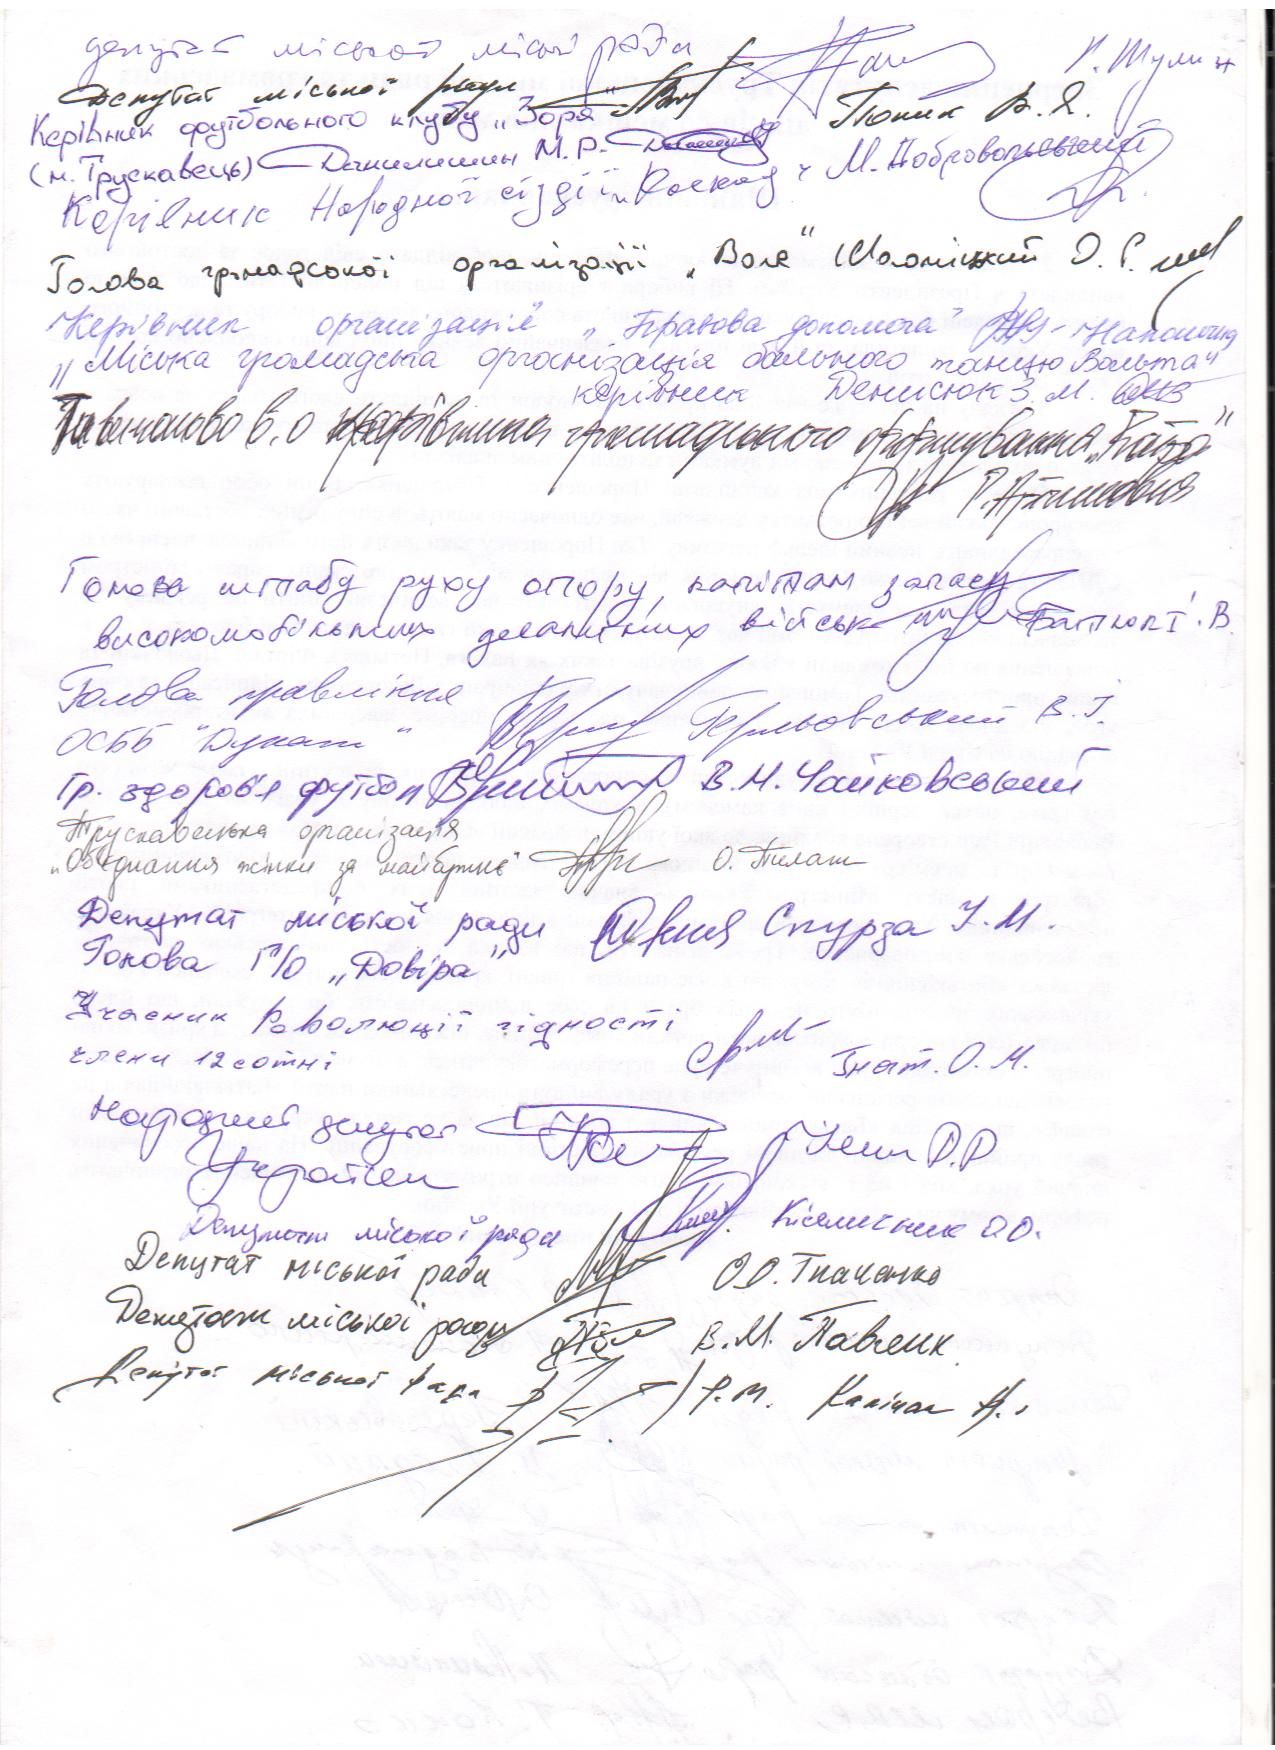 депутат міської міської ради Г. Шулик
Депутат міської ради Попик В. Я.
Керівник футбольного клубу „Зоря"
(м. Трускавець) Данилишин М. Р.
Керівник Народної студії „Каскад" М. Добровольський
Голова громадської організації „Воля" Шоломіцький О. Р.
Керівник організації „Правова допомога"
„Міська громадська організація бального танцю Вольта"
керівник Денисюк З. М.
Тимчасово в. о керівника громадського формування
Голова штабу руху опору, капітан запасу
високомобільних десантних військ І. В.
Голова правління В. І.
ОСББ "Дукат"
Гр. здоров'я футбол В. М. Чайковський
Трускавецька організація
„Об'єднання жінки за майбутнє" О. Пилат
Депутат міської ради Спурза І. М.
Голова Г/О „Довіра"
Учасник Революції гідності
члени 12 сотні Гнат. О. М.
Народний депутат Р. Р
України
Депутат міської ради Кісличник О. О.
Депутат міської ради О О. Ткаченко
Депутат міської ради В. М. Павлик
Депутат міської ради Р. М.